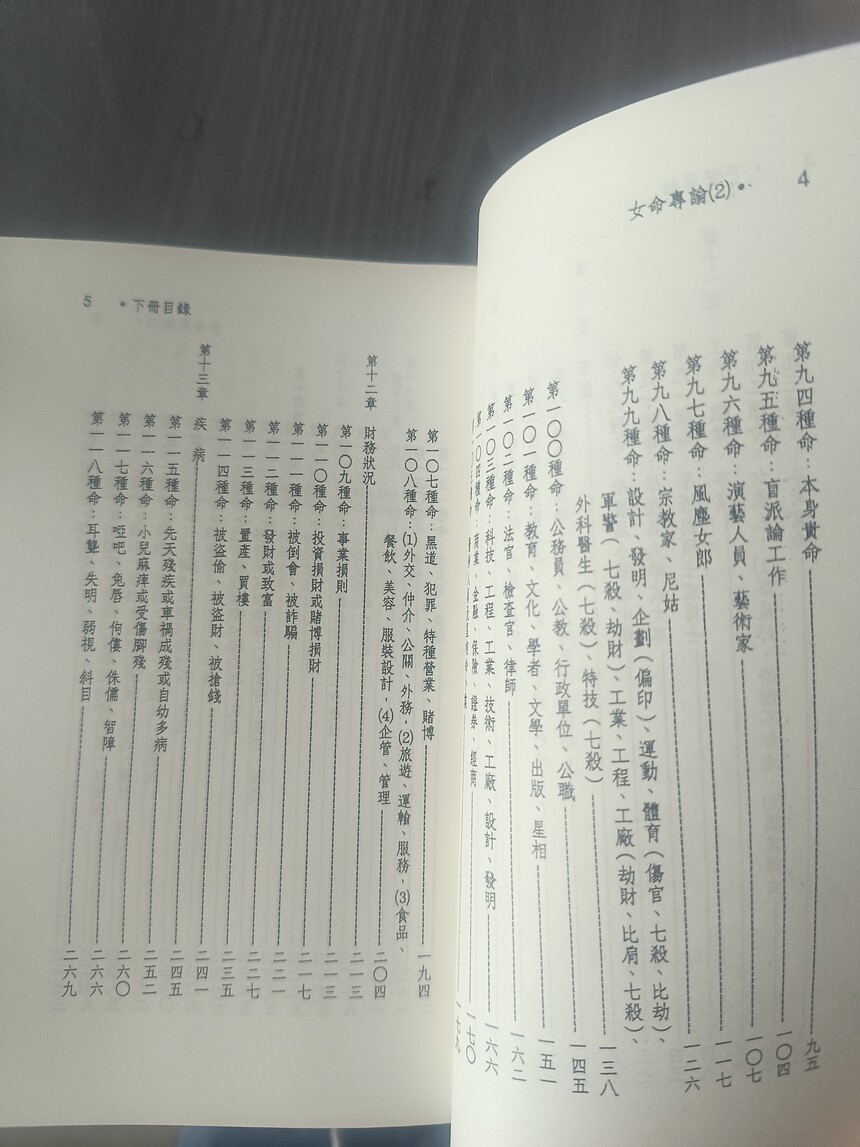 4
女命專論(2)
第九四種命：本身貴命 九五
第九五種命：盲派論工作 一〇四
第九六種命：演藝人員、藝術家 一〇七
第九七種命：風塵女郎 一一七
第九八種命：宗教家、尼姑 一二六
第九九種命：設計、發明、企劃(偏印)、運動、體育(傷官、七殺、比劫)、
軍警(七殺、劫財)、工業、工程、工廠(劫財、比肩、七殺)、
外科醫生(七殺)、特技(七殺) 一三八
第一〇〇種命：公務員、公教、行政單位、公職 一四五
第一〇一種命：教育、文化、學者、文學、出版、星相 一五一
第一〇二種命：法官、檢查官、律師 一六二
第一〇三種命：科技、工程、工業、技術、工廠、設計、發明 一六六
第一〇四種命：商業、金融、保險、證券、經商 一七〇
5
•下冊目錄
第一〇七種命：黑道、犯罪、特種營業、賭博 一九四
第一〇八種命：(1)外交、仲介、公關、外務，(2)旅遊、運輸、服務，(3)食品、
餐飲、美容、服裝設計，(4)企管、管理 二〇四
第十二章 財務狀況 二一三
第一〇九種命：事業損則 二一三
第一一〇種命：投資損財或賭博損財 二一七
第一一一種命：被倒會、被詐騙 二二一
第一一二種命：發財或致富 二二七
第一一三種命：置產、買樓 二三五
第一一四種命：被盜偷、被盜財、被搶錢 二四一
第十三章 疾病 二四五
第一一五種命：先天殘疾或車禍成殘或自幼多病 二五二
第一一六種命：小兒麻痺或受傷腳殘 二六〇
第一一七種命：啞吧、兔唇、佝僂、侏儒、智障 二六六
第一一八種命：耳聾、失明、弱視、斜目 二六九